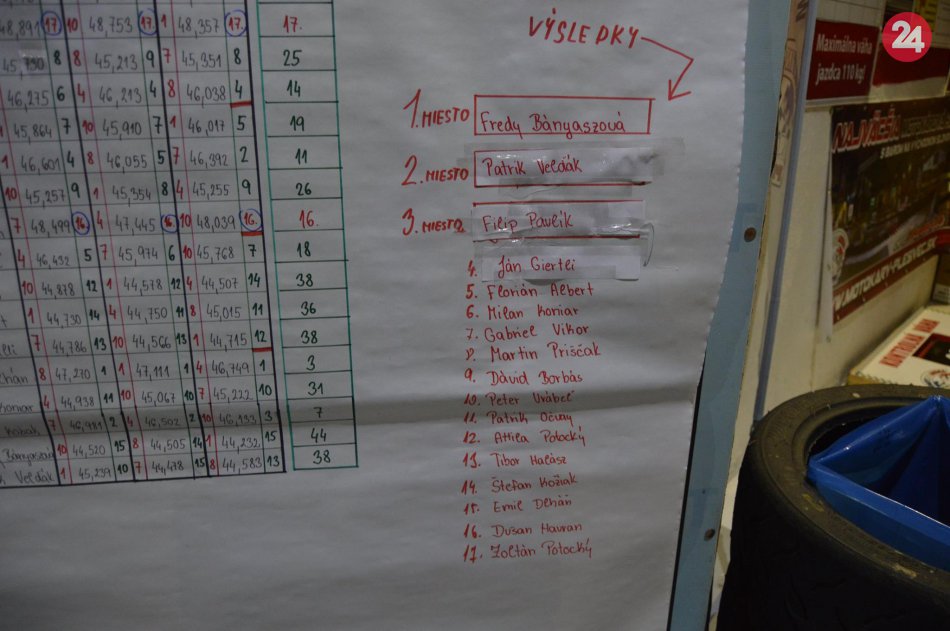 24
48,891 17 10 48,753 17 1 48,357 17. 17.
45,790 8 8 45,213 9 7 45,351 8 25
46,275 6 4 46,213 4 8 46,038 4 14
45,864 7 10 45,910 7 1 46,017 5 19
1 46,601 4 8 46,055 5 7 46,392 2 11
10 45,257 9 1 45,354 8 4 45,255 9 26
7 48,499 16 4 47,445 16 10 48,039 16. 16.
4 46,432 5 7 45,974 6 10 45,768 7 18
10 44,878 12 1 44,578 12 4 44,507 14 38
1 44,730 14 4 44,750 11 8 45,015 11 36
7 44,786 13 10 44,566 13 1 44,715 12 38
8 47,270 1 1 47,111 1 4 46,749 1 3
4 44,938 11 10 45,067 10 7 45,222 10 31
7 46,981 2 4 46,502 2 10 46,132 3 7
Bányaszová 10 44,520 15 8 44,505 14 1 44,232 15 44
Velďák 1 45,239 10 7 44,478 15 8 44,583 13 38
VÝSLEDKY
1. MIESTO Fredy Bányaszová
2. MIESTO Patrik Velďák
3. MIESTO Filip Pavlik
4. Ján Giertli
5. Florián Albert
6. Milan Koniar
7. Gabriel Vikor
8. Martin Priščak
9. Dávid Borbás
10. Peter Vrábel
11. Patrik Očvay
12. Attila Potocký
13. Tibor Halász
14. Štefan Kožiak
15. Emil Deháň
16. Dušan Havran
17. Zoltán Potocký
Maximálna váha
jazdca 110 kg!
NAJVÄČŠIA
WWW.MOTOKARY-PLESIVEC.SK